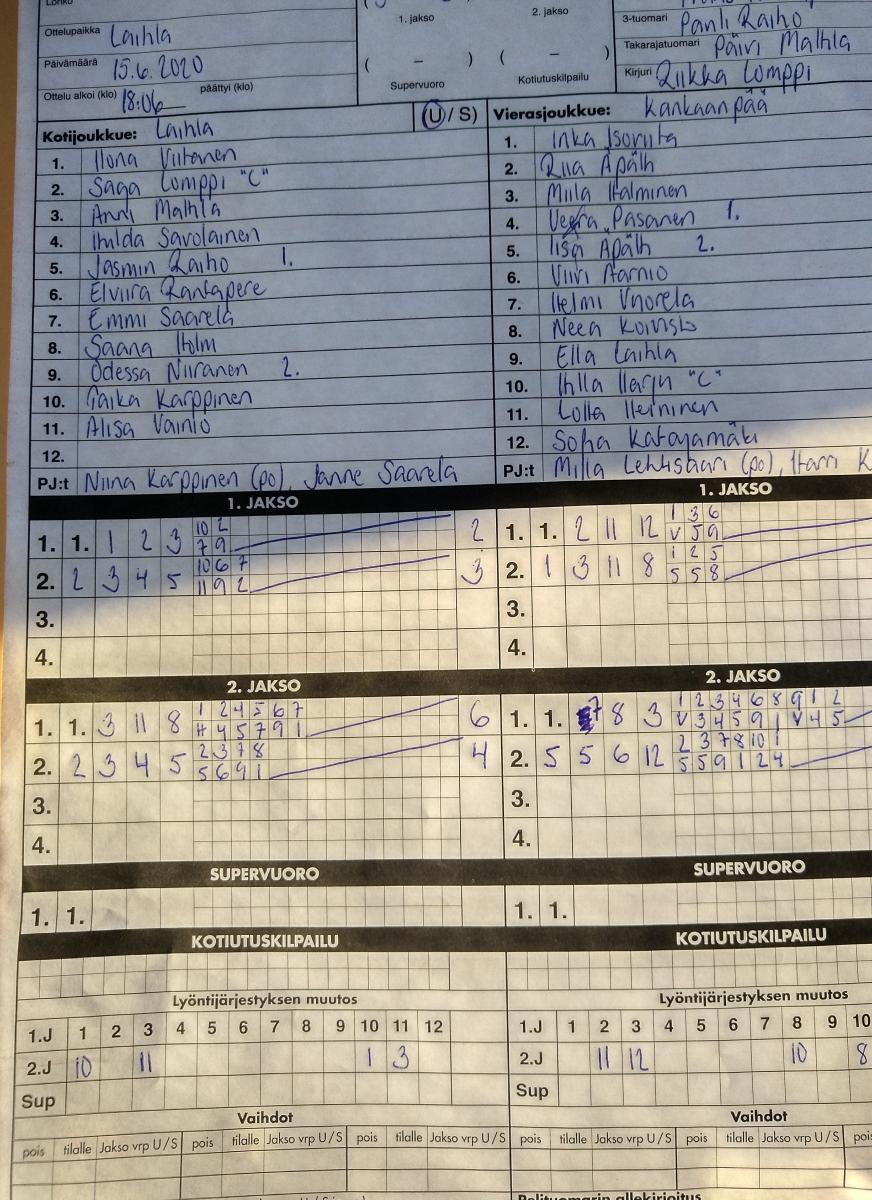 Ottelupaikka Laihla
Päivämäärä 15.6.2020
Ottelu alkoi (klo) 18:06 päättyi (klo)
1. jakso 2. jakso
( – ) ( – )
Supervuoro Kotiutuskilpailu
3-tuomari Pauli Raiho
Takarajatuomari Päivi Mathla
Kirjuri Riikka Lomppi
Kotijoukkue: Laihla (U / S)
1. Ilona Viitanen
2. Saga Lomppi "C"
3. Anni Mathla
4. Hilda Savolainen
5. Jasmin Raiho 1.
6. Elviira Rantapere
7. Emmi Saarela
8. Saana Holm
9. Odessa Niiranen 2.
10. Taika Karppinen
11. Alisa Vainio
12.
PJ:t Niina Karppinen (po), Janne Saarela
Vierasjoukkue: Kankaanpää
1. Inka
2. Riia
3. Miila Halminen
4. Veera Pasanen 1.
5. Iisa 2.
6. Viivi Aarnio
7. Helmi Vuorela
8. Neea Koivisto
9. Ella Laihla
10. Harju "C"
11. Lotta Heininen
12. Sofia Katajamäki
PJ:t Milla (po), Harri K
1. JAKSO
1. 1. 1 2 3 10 2 2
7 9
2. 2 3 4 5 10 6 7 3
11 9 2
3.
4.
1. JAKSO
1. 1. 2 11 12 1 3 6
V 5 9
2. 1 3 11 8 1 2 5
5 5 8
3.
4.
2. JAKSO
1. 1. 3 11 8 1 2 4 5 6 7 6
H 4 5 7 9 1
2. 2 3 4 5 2 3 7 8 4
5 6 9 1
3.
4.
2. JAKSO
1. 1. 7 8 3 1 2 3 4 6 8 9 1 2
V 3 4 5 9 1 V 4 5
2. 5 5 6 12 2 3 7 8 10 1
5 5 9 1 2 4
3.
4.
SUPERVUORO
1. 1.
SUPERVUORO
1. 1.
KOTIUTUSKILPAILU
KOTIUTUSKILPAILU
Lyöntijärjestyksen muutos
1.J 1 2 3 4 5 6 7 8 9 10 11 12
2.J 10 11 1 3
Sup
Lyöntijärjestyksen muutos
1.J 1 2 3 4 5 6 7 8 9 10
2.J 11 12 10 8
Sup
Vaihdot
pois tilalle Jakso vrp U / S pois tilalle Jakso vrp U / S pois tilalle Jakso vrp U / S
Vaihdot
pois tilalle Jakso vrp U / S pois tilalle Jakso vrp U / S pois
Pelituomarin allekirjoitus